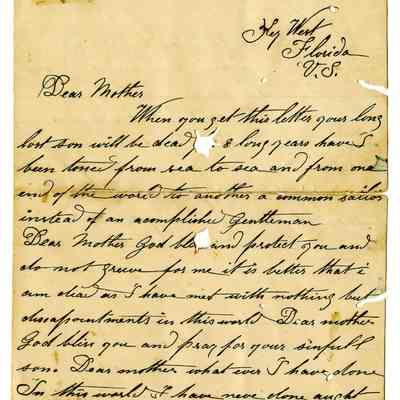 Key West
Florida
U.S.
Dear Mother
When you get this letter your long
lost son will be dead 8 long years have I
been tosed from sea to sea and from one
end of the world to another a common sailor
instead of an acomplished Gentleman
Dear Mother God bless and protect you and
do not greive for me it is better that i
am dead as I have met with nothing but
disapointments in this world Dear mother
God bless you and pray for your sinfull
son. Dear mother what ever I have done
In this world I have neve done aught